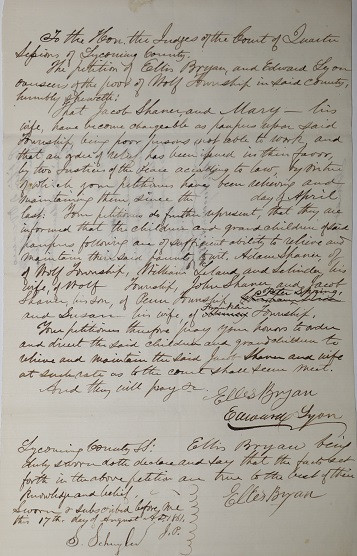 To the Hon. the Judges of the Court of Quarter
Sessions of Lycoming County.
The petition of Ellis Bryan, and Edward Lyon
overseers of the poor of Wolf Township in said County,
humbly sheweth:
That Jacob Shaner and Mary — his
wife, have become chargeable as paupers upon said
Township, being poor persons not able to work, and
that an order of relief has been issued in their favor,
by two Justices of the Peace according to law, by virtue
of which your petitioners have been relieving and
maintaining them since the day of April
last. Your petitioners do further represent, that they are
informed that the children and grandchildren of said
paupers following are of sufficient ability to relieve and
maintain their said parents, Adam Shaner, of
of Wolf Township, William and Selinda his
wife of Wolf Township, John Shaner and Jacob
Shaner, his son, of Penn Township, Peter
and Susan his wife, of Franklin Township.
Your petitioners therefore pray your honors to order
and direct the said children and grandchildren to
relieve and maintain the said Shaner and wife
at such rate as to the court shall seem meet.
And they will pray &c.
Ellis Bryan
Edward Lyon
Lycoming County, SS. Ellis Bryan being
duly sworn doth declare and say that the facts set
forth in the above petition are true to the best of their
knowledge and belief.
Sworn & subscribed before me
this 17th day of August A.D.
Ellis Bryan
S. Schuyler J.P.